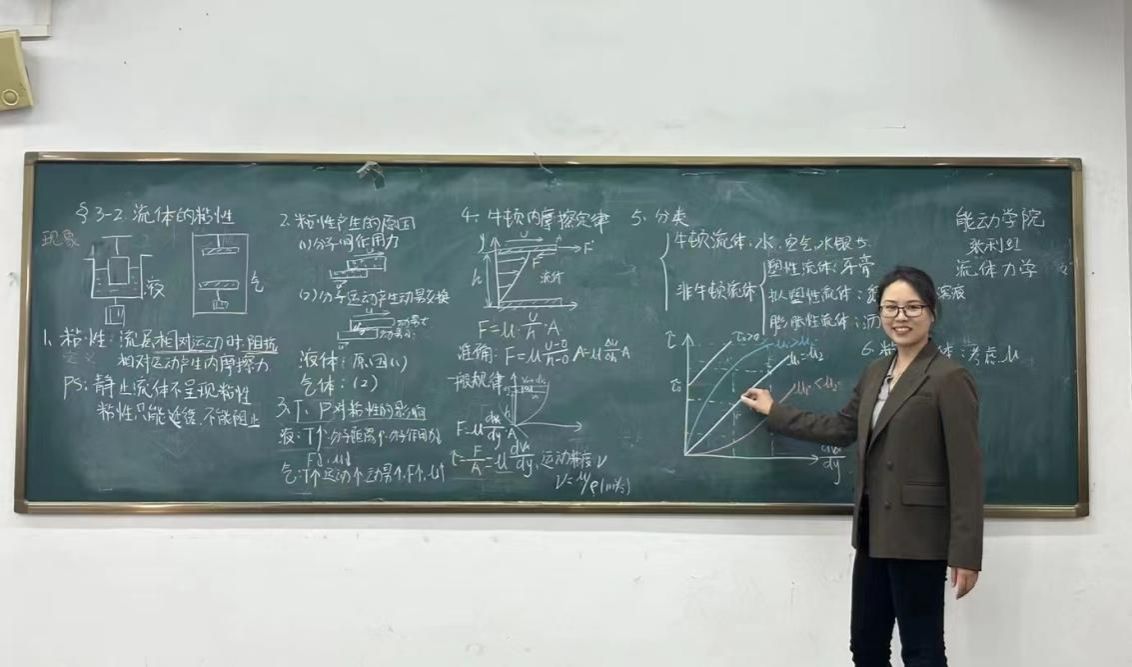 §3-2 流体的粘性
现象
液
气
1、粘性：流层相对运动时，阻抗
定义
相对运动产生内摩擦力
PS：静止流体不呈现粘性
粘性只能延缓、不能阻止
2、粘性产生的原因
(1)分子间作用力
(2)分子运动产生动量交换
液体：原因(1)
气体：(2)
3、T、P对粘性的影响
液：T↑分子距离↑分子作用力↓
F↓，μ↓
气：T↑运动↑动量↑，F↑，μ↑
4、牛顿内摩擦定律
U
F
h
流体
F=μ·U/h·A
准确：F=μ(U-0)/(h-0) A=μ Δu/Δh A
一般规律
F=μ dvx/dy A
τ=F/A=μ dvx/dy，运动粘度ν
ν=μ/ρ(m²/s)
5、分类
牛顿流体：水、空气、水银等
非牛顿流体
塑性流体：牙膏
拟塑性流体：
膨胀性流体：
τ
τ₀
τ₀>0
μ₁=μ₂
dvx/dy
6、粘
体：考虑μ
能动学院
张利红
流体力学